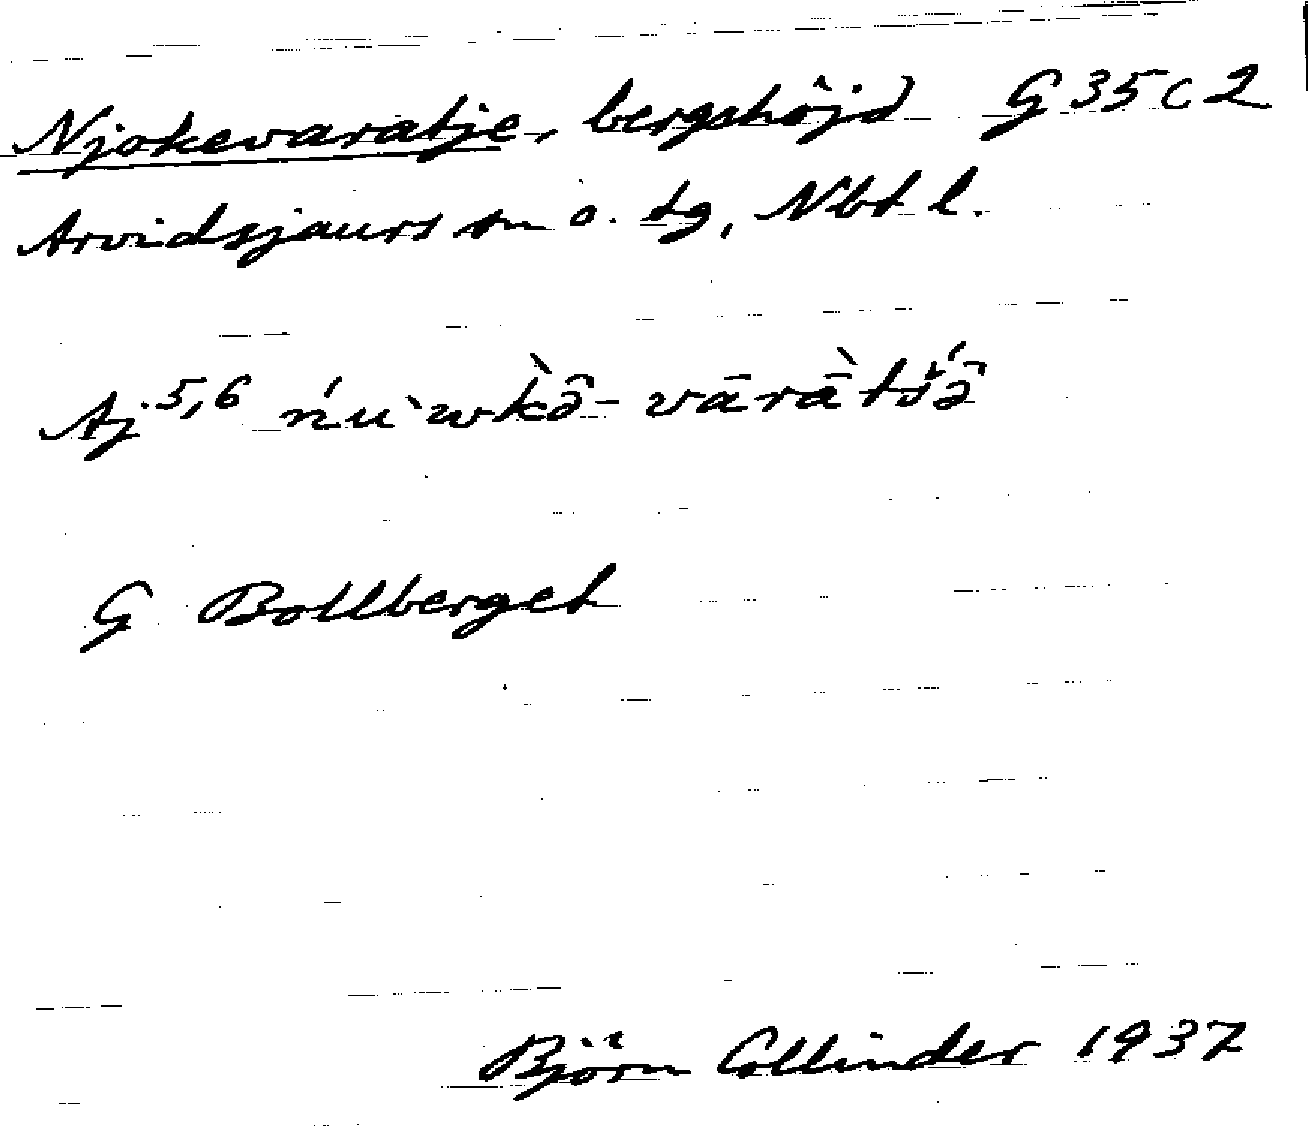 Njokevaratje, bergshöjd G 35 c 2
Arvidsjaurs sn o. tg, Nbt l.
Aj. 5,6 ńu`wkə̑ - vārā̀tśə̑
G Bollberget
Björn Collinder 1937